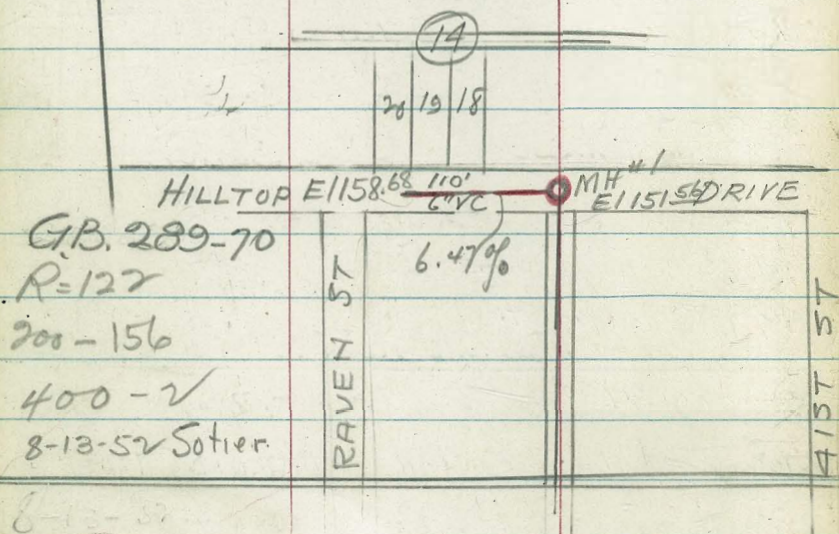 14
20 19 18
HILLTOP E1158.68 110' MH #1
6" VC E1151.56 DRIVE
6.47%
G.B. 289-70
R=122
200-156
400-2
8-13-52 Sotier
RAVEN ST
41ST ST
8-13-52